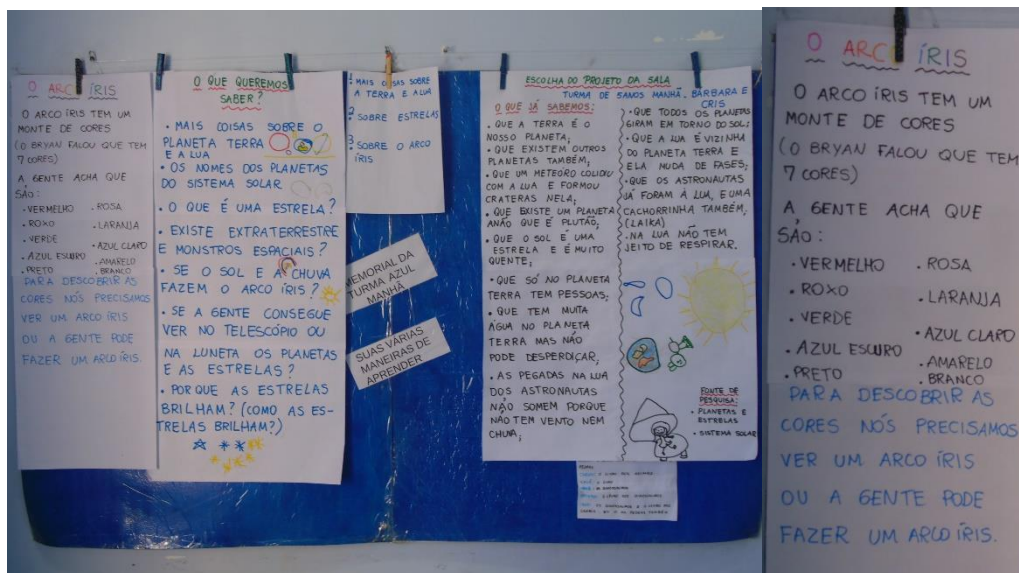 O ARCO ÍRIS
O ARCO ÍRIS TEM UM
MONTE DE CORES
(O BRYAN FALOU QUE TEM
7 CORES)
A GENTE ACHA QUE
SÃO:
· VERMELHO · ROSA
· ROXO · LARANJA
· VERDE
· AZUL CLARO
· AZUL ESCURO
· AMARELO
· PRETO · BRANCO
PARA DESCOBRIR AS
CORES NÓS PRECISAMOS
VER UM ARCO ÍRIS
OU A GENTE PODE
FAZER UM ARCO ÍRIS.
O QUE QUEREMOS
SABER?
· MAIS COISAS SOBRE O
PLANETA TERRA
E A LUA
· OS NOMES DOS PLANETAS
DO SISTEMA SOLAR
· O QUE É UMA ESTRELA?
· EXISTE EXTRATERRESTRE
E MONSTROS ESPACIAIS?
· SE O SOL E A CHUVA
FAZEM O ARCO ÍRIS?
· SE A GENTE CONSEGUE
VER NO TELESCÓPIO OU
NA LUNETA OS PLANETAS
E AS ESTRELAS?
· POR QUE AS ESTRELAS
BRILHAM? (COMO AS ES-
TRELAS BRILHAM?)
1 MAIS COISAS SOBRE
A TERRA E A LUA
2 SOBRE ESTRELAS
3 SOBRE O ARCO
ÍRIS
MEMORIAL DA
TURMA AZUL
MANHÃ
SUAS VÁRIAS
MANEIRAS DE
APRENDER
ESCOLHA DO PROJETO DA SALA
TURMA DE 5 ANOS MANHÃ - BÁRBARA E
CRIS
O QUE JÁ SABEMOS:
· QUE A TERRA É O
NOSSO PLANETA;
· QUE EXISTEM OUTROS
PLANETAS TAMBÉM;
· QUE UM METEORO COLIDIU
COM A LUA E FORMOU
CRATERAS NELA;
· QUE EXISTE UM PLANETA
ANÃO QUE É PLUTÃO;
· QUE O SOL É UMA
ESTRELA E É MUITO
QUENTE;
· QUE SÓ NO PLANETA
TERRA TEM PESSOAS;
· QUE TEM MUITA
ÁGUA NO PLANETA
TERRA MAS NÃO
PODE DESPERDIÇAR;
· AS PEGADAS NA LUA
DOS ASTRONAUTAS
NÃO SOMEM PORQUE
NÃO TEM VENTO NEM
CHUVA;
· QUE TODOS OS PLANETAS
GIRAM EM TORNO DO SOL;
· QUE A LUA É VIZINHA
DO PLANETA TERRA E
ELA MUDA DE FASES;
· QUE OS ASTRONAUTAS
JÁ FORAM À LUA, E UMA
CACHORRINHA TAMBÉM,
(LAIKA)
· NA LUA NÃO TEM
JEITO DE RESPIRAR.
FONTE DE
PESQUISA:
· PLANETAS E
ESTRELAS
· SISTEMA SOLAR
O ARCO ÍRIS
O ARCO ÍRIS TEM UM
MONTE DE CORES
(O BRYAN FALOU QUE TEM
7 CORES)
A GENTE ACHA QUE
SÃO:
· VERMELHO · ROSA
· ROXO · LARANJA
· VERDE
· AZUL CLARO
· AZUL ESCURO
· AMARELO
· PRETO · BRANCO
PARA DESCOBRIR AS
CORES NÓS PRECISAMOS
VER UM ARCO ÍRIS
OU A GENTE PODE
FAZER UM ARCO ÍRIS.